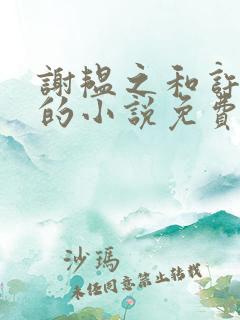 謝韞之和許
的小說免費
沙瑪
未經同意禁止轉載